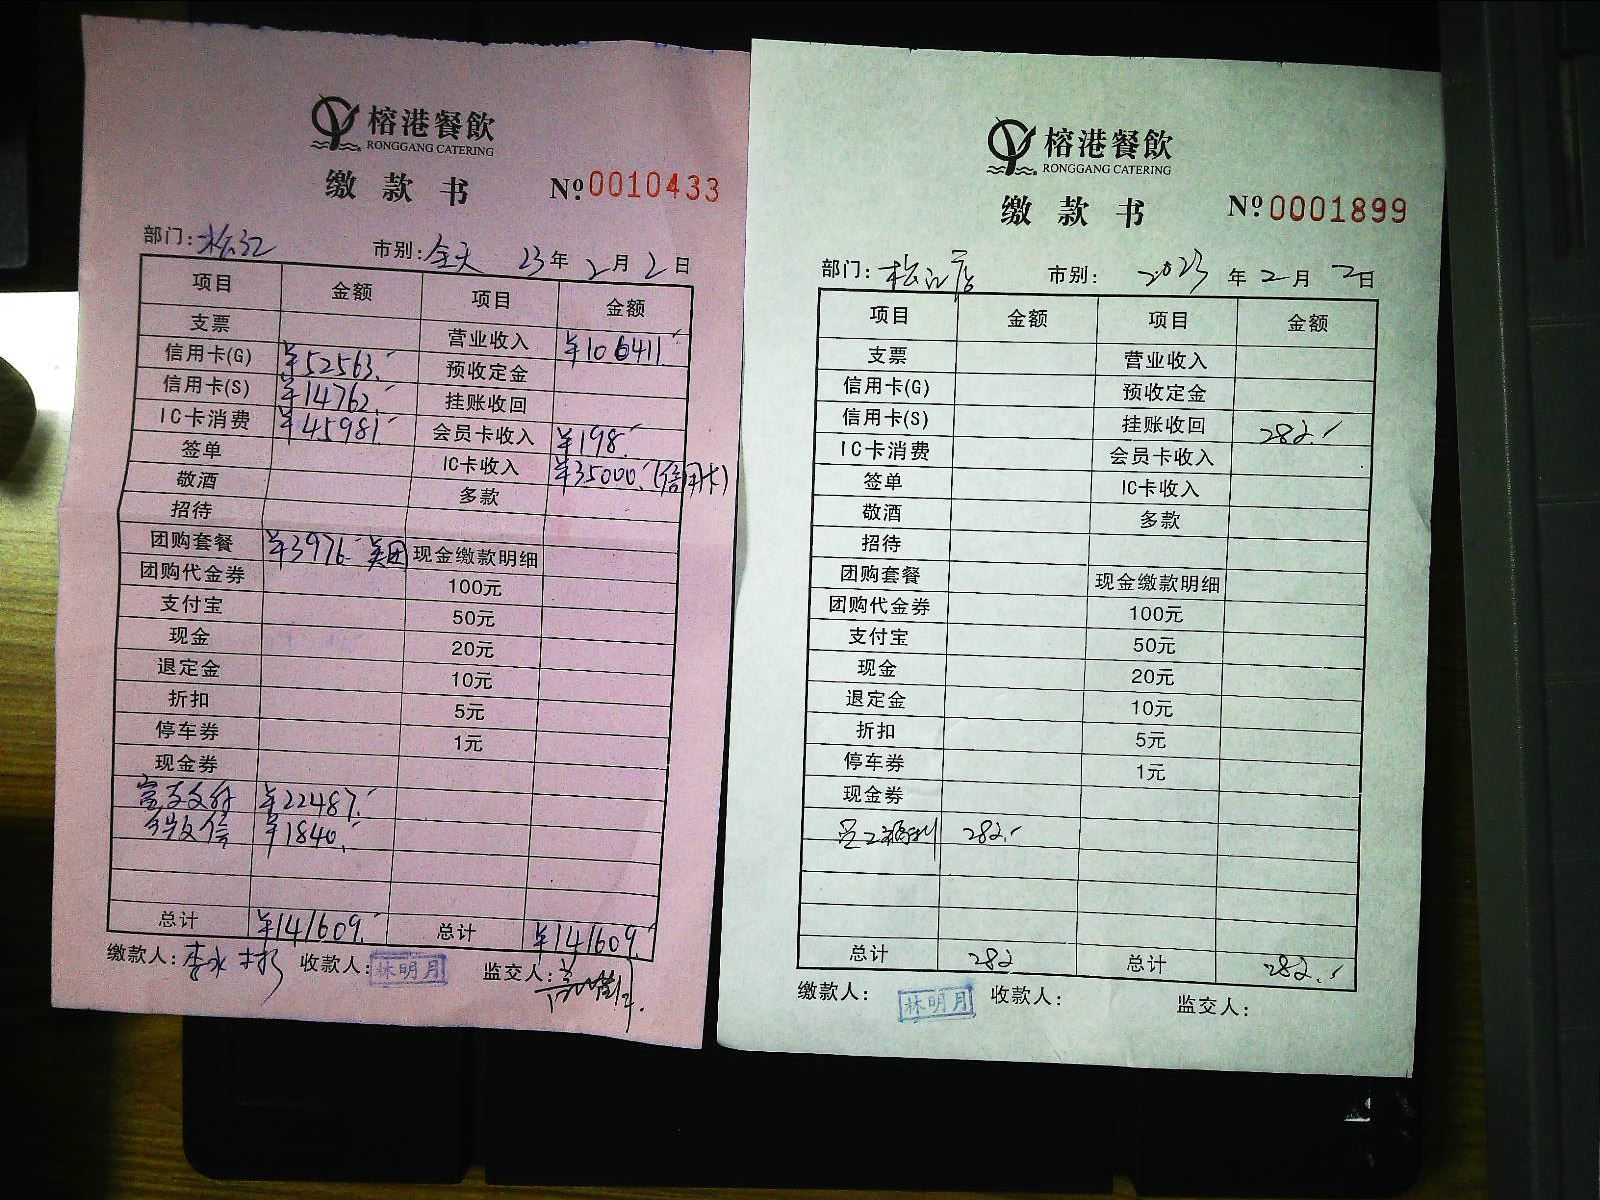 榕港餐飲
RONGGANG CATERING
缴款书 №0010433
部门:松江 市别:全天 23年2月2日
项目 金额 项目 金额
支票 营业收入 ¥106411.-
信用卡(G) ¥52563.- 预收定金
信用卡(S) ¥14762.- 挂账收回
IC卡消费 ¥45981.- 会员卡收入 ¥198.-
签单 IC卡收入 ¥35000.-(信用卡)
敬酒 多款
招待
团购套餐 ¥3976.- 美团 现金缴款明细
团购代金券 100元
支付宝 50元
现金 20元
退定金 10元
折扣 5元
停车券 1元
现金券
¥22487.-
¥1840.-
总计 ¥141609.- 总计 ¥141609.-
缴款人:李永 收款人:林明月 监交人:
榕港餐飲
RONGGANG CATERING
缴款书 №0001899
部门:松江店 市别: 2023年2月2日
项目 金额 项目 金额
支票 营业收入
信用卡(G) 预收定金
信用卡(S) 挂账收回 282.-
IC卡消费 会员卡收入
签单 IC卡收入
敬酒 多款
招待
团购套餐 现金缴款明细
团购代金券 100元
支付宝 50元
现金 20元
退定金 10元
折扣 5元
停车券 1元
现金券
员工福利 282.-
总计 282 总计 282.-
缴款人: 林明月 收款人: 监交人: